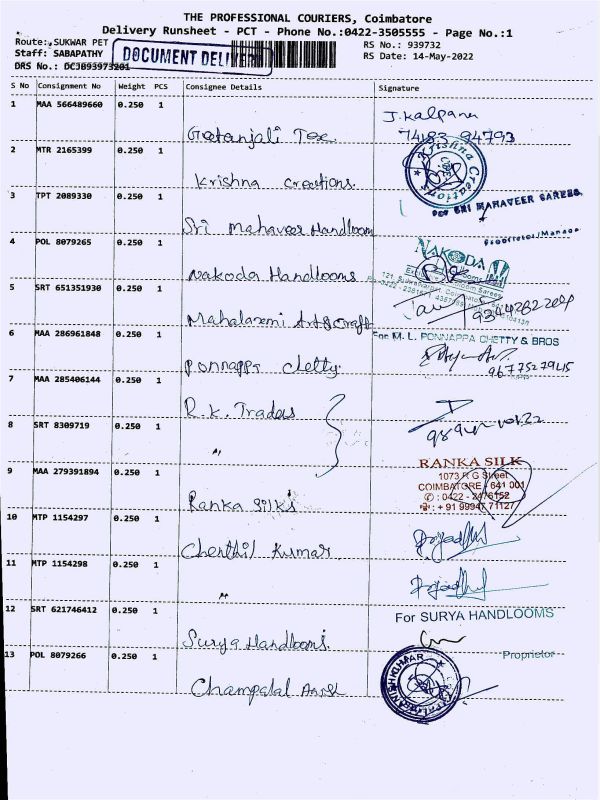 THE PROFESSIONAL COURIERS, Coimbatore
Delivery Runsheet - PCT - Phone No.:0422-3505555 - Page No.:1
Route: SUKWAR PET RS No.: 939732
Staff: SABAPATHY RS Date: 14-May-2022
DRS No.: DCJ093973201
DOCUMENT DELIVERY
S No Consignment No Weight PCS Consignee Details Signature
1 MAA 566489660 0.250 1 Geetanjali Tex J.Kalpana
74183 94793
2 MTR 2165399 0.250 1 Krishna creations. Krishna Creations
3 TPT 2089330 0.250 1 Sri Mahaveer Handloom For SRI MAHAVEER SAREES
Proprietor/Manager
4 POL 8079265 0.250 1 Nakoda Handlooms NAKODA
5 SRT 651351930 0.250 1 Mahalaxmi Art & Craft
6 MAA 286961848 0.250 1 Ponnappa Chetty For M. L. PONNAPPA CHETTY & BROS
9677527945
7 MAA 285406144 0.250 1 R.K. Traders
8 SRT 8309719 0.250 1 "
9 MAA 279391894 0.250 1 Ranka Silks RANKA SILK
1073 R G Street
COIMBATORE - 641 001
✆ : 0422 - 2476152
: + 91 99947 71127
10 MTP 1154297 0.250 1 Chenthil Kumar
11 MTP 1154298 0.250 1 "
12 SRT 621746412 0.250 1 Surya Handlooms. For SURYA HANDLOOMS
Proprietor
13 POL 8079266 0.250 1 Champalal